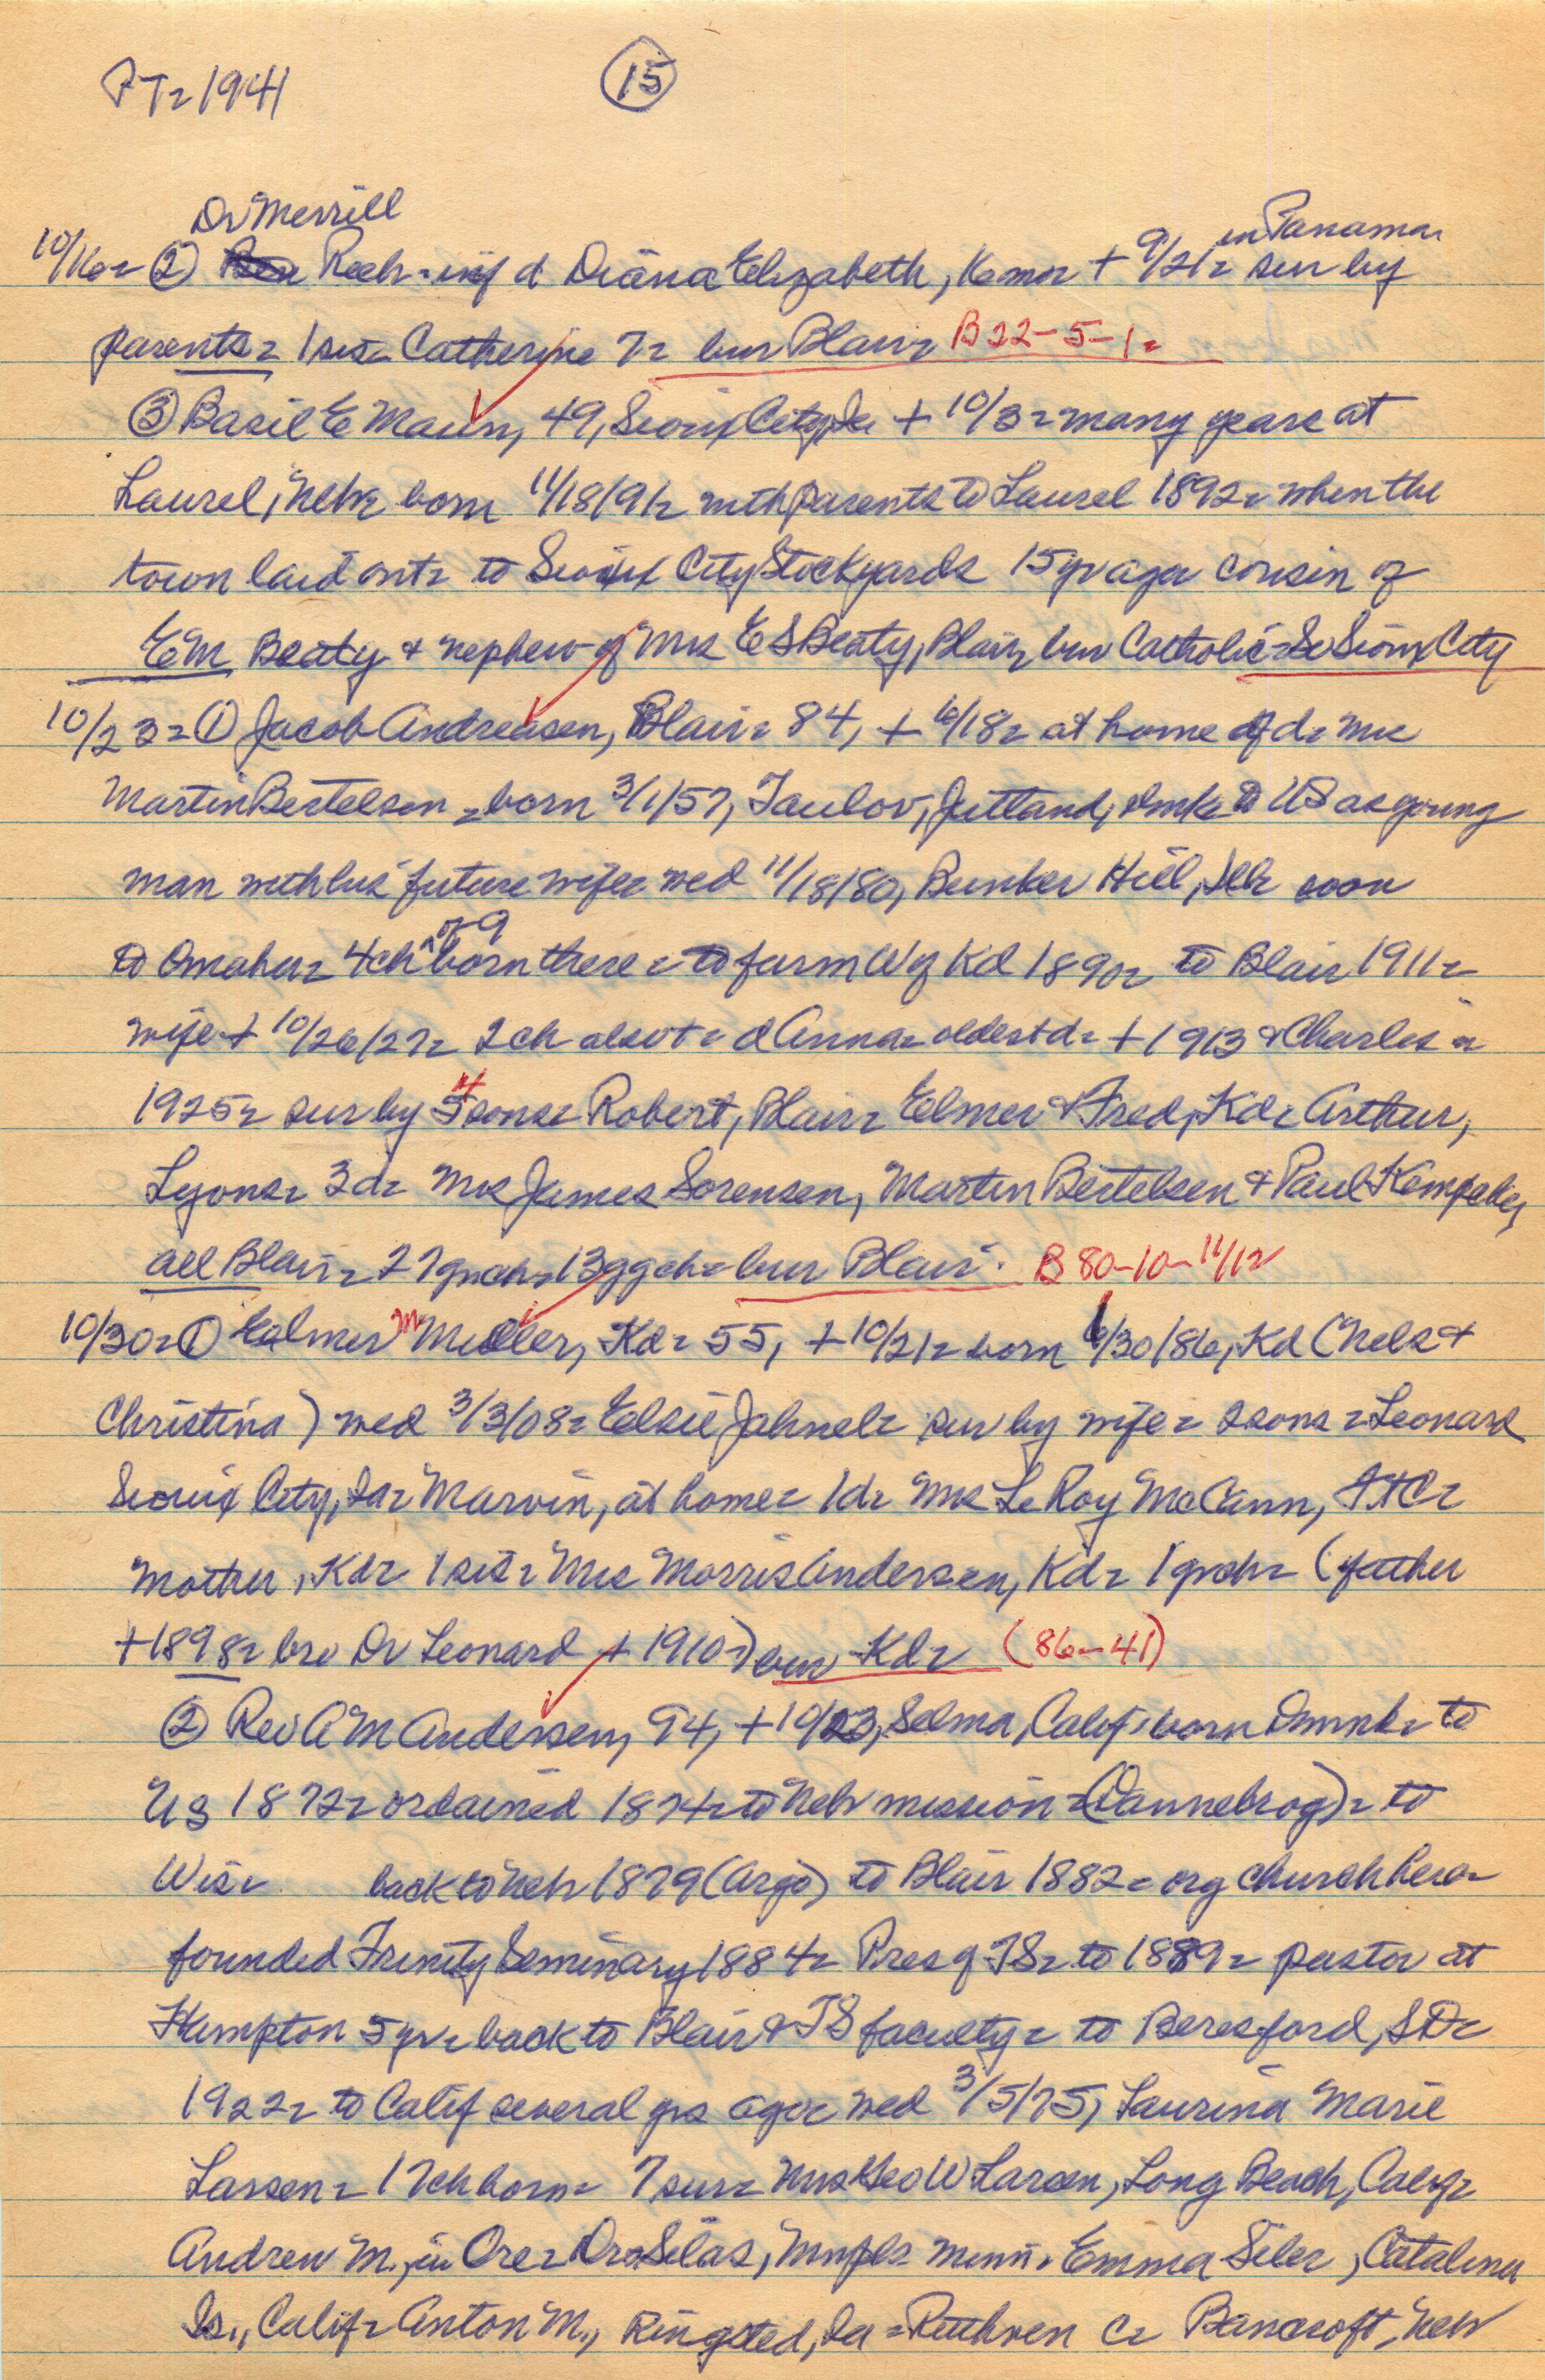 PT= 1941
15
Dr Merrill
in Panama
10/16= ② Rech= inf d Diana Elizabeth, 16 mo= + 9/21= sur by
parents= 1 sis= Catherine 7= bur Blair= B 22-5-1=
③ Basil E Maun, 49, Sioux City, Ia + 10/3= many years at
Laurel, Neb= born 11/18/91= with parents to Laurel 1892= when the
town laid out= to Sioux City Stockyards 15 yr ago= cousin of
EM Beaty & nephew of Mrs E S Beaty, Blair= bur Catholic= So Sioux City
10/23= ① Jacob Andreasen, Blair= 84, + 10/18= at home of d= Mrs
Martin Bertelsen= born 3/1/57, Taulov, Jutland, Dmk= to US as young
man with his future wife= wed 11/18/80, Bunker Hill, Ill= soon
of 9
to Omaha= 4 ch born there= to farm W of Kd 1890= to Blair 1911=
wife + 10/26/27= 2 ch also += d Anna= oldest d= + 1913 & Charles=
4
1925= sur by 5 sons= Robert, Blair= Elmer & Fred, Kd= Arthur,
Lyons= 3 d= Mrs James Sorensen, Martin Bertelsen & Paul Kempcke,
all Blair= 27 grch= 13 ggch= bur Blair. B 80-10-11/12
10/30= ① Elmer M Miller, Kd= 55, + 10/21= born 1/30/86, Kd (Nels &
Christina) wed 3/3/08= Elsie Jahnel= sur by wife= 2 sons= Leonard
Sioux City, Ia= Marvin, at home= 1 d= Mrs LeRoy McCann, FtC=
Mother, Kd= 1 sis= Mrs Morris Andersen, Kd= 1 grch= (father
+ 1898= bro Dr Leonard + 1910=) bur Kd= (86-41)
② Rev A M Andersen, 94, + 10/23, Selma, Calif= born Dnmk= to
US 1872= ordained 1874= to Neb mission= (Dannebrog)= to
Wis= back to Neb 1879 (Argo) to Blair 1882= org church here=
founded Trinity Seminary 1884= Pres of TS= to 1889= pastor at
Hampton 5 yr= back to Blair & TS faculty= to Beresford, SD=
1922= to Calif several yrs ago= wed 3/5/75, Laurina Marie
Larsen= 17 ch born= 7 sur= Mrs Geo W Larsen, Long Beach, Calif=
Andrew M., in Ore= Dr Silas, Mnpls Minn= Emma Siler, Catalina
Is., Calif= Anton M., Ringsted, Ia= Ruthven C= Bancroft, Neb